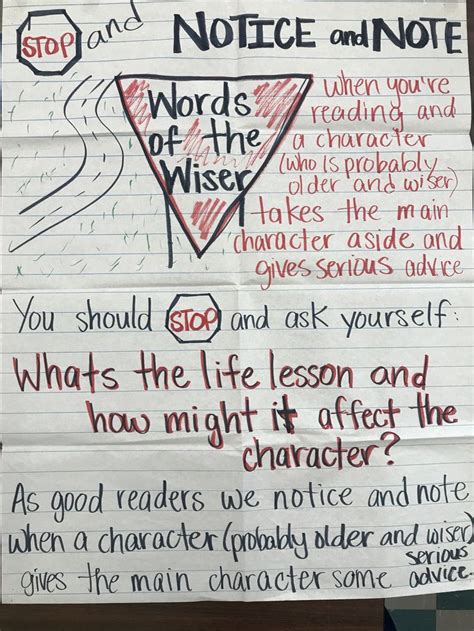 STOP and NOTICE and NOTE
Words
of the
Wiser
When you're
reading and
a character
(who is probably
older and wiser)
takes the main
character aside and
gives serious advice
You should STOP and ask yourself:
Whats the life lesson and
how might it affect the
character?
As good readers we notice and note
when a character (probably older and wiser)
gives the main character some serious advice.